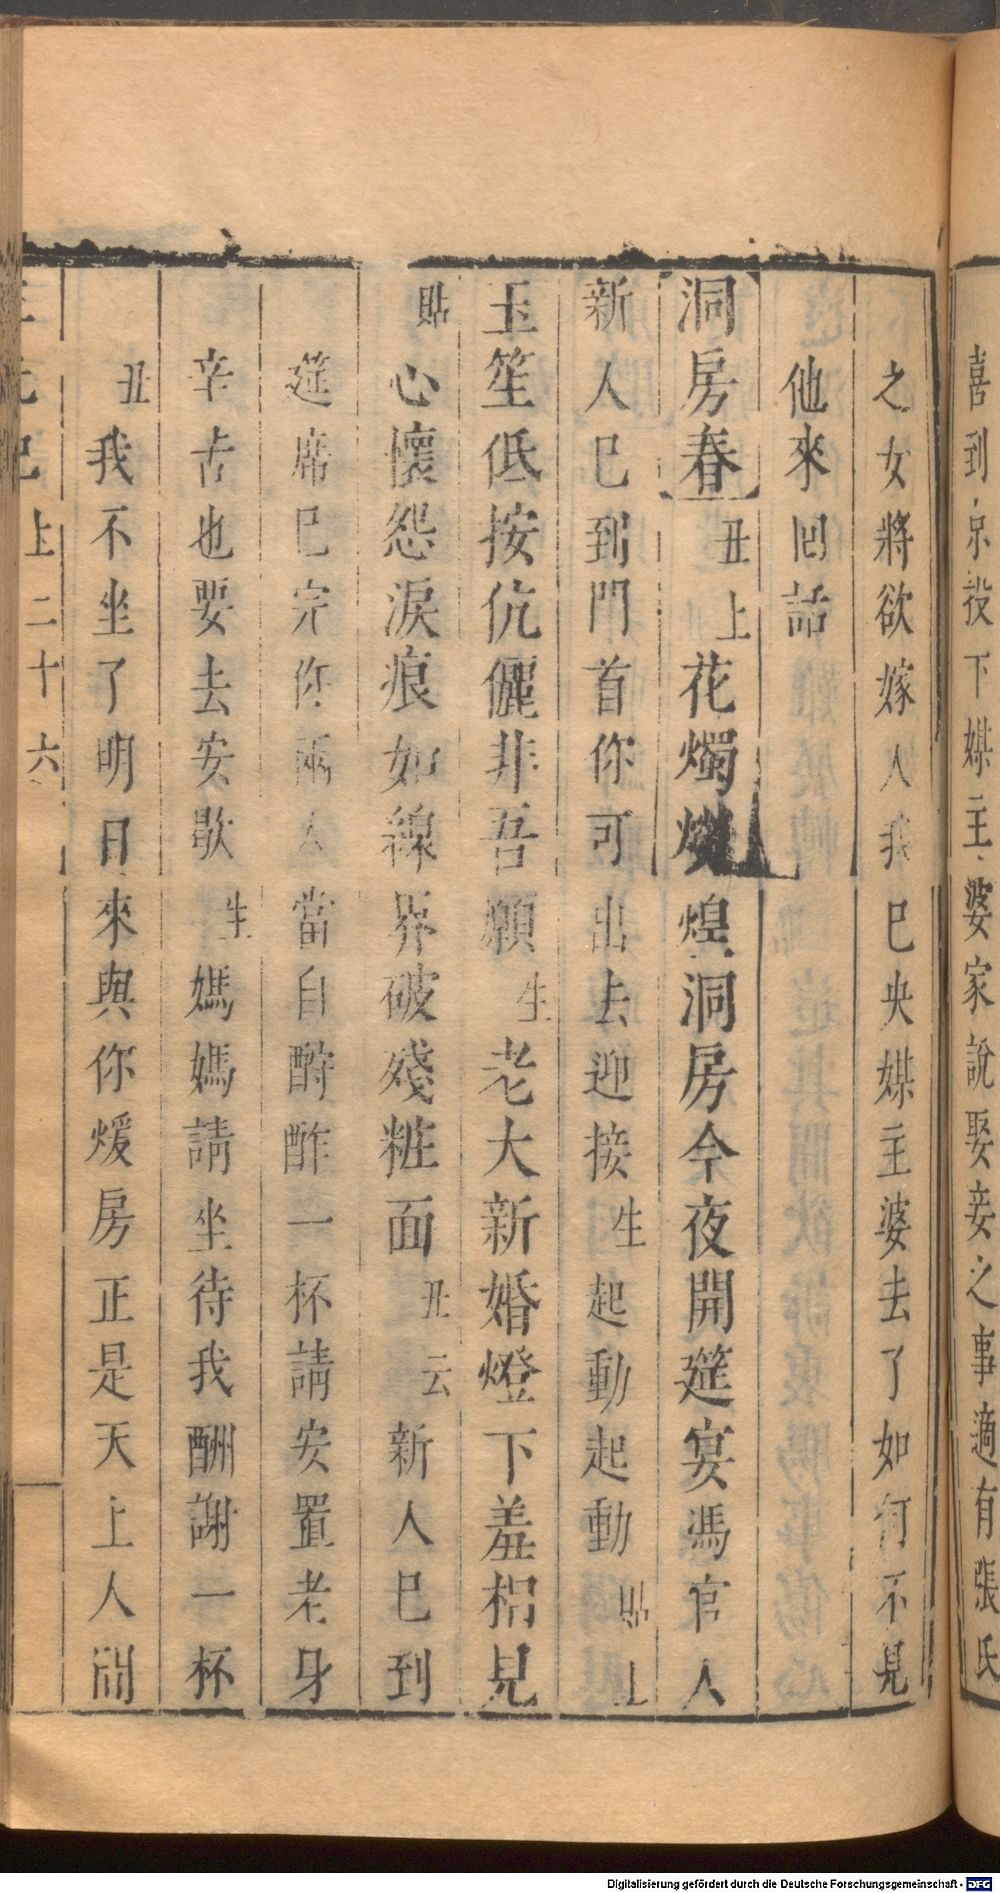 喜到京投下媒主婆家說娶妾之事適有張氏
之女將欲嫁人我已央媒主婆去了如何不見
他來回話
洞房春 丑上 花燭熒煌洞房今夜開筵宴馮官人
新人已到門首你可出去迎接 生 起動起動 貼上
玉笙低按伉儷非吾願 生 老大新婚燈下羞相見
貼 心懷怨淚痕如線界破殘粧面 丑云 新人已到
筵席已完你兩人當自酹酢一杯請安置老身
辛古也要去安歇 生 媽媽請坐待我酬謝一杯
丑 我不坐了明日來與你煖房正是天上人間
三元記 上 二十六
Digitalisierung gefördert durch die Deutsche Forschungsgemeinschaft - DFG